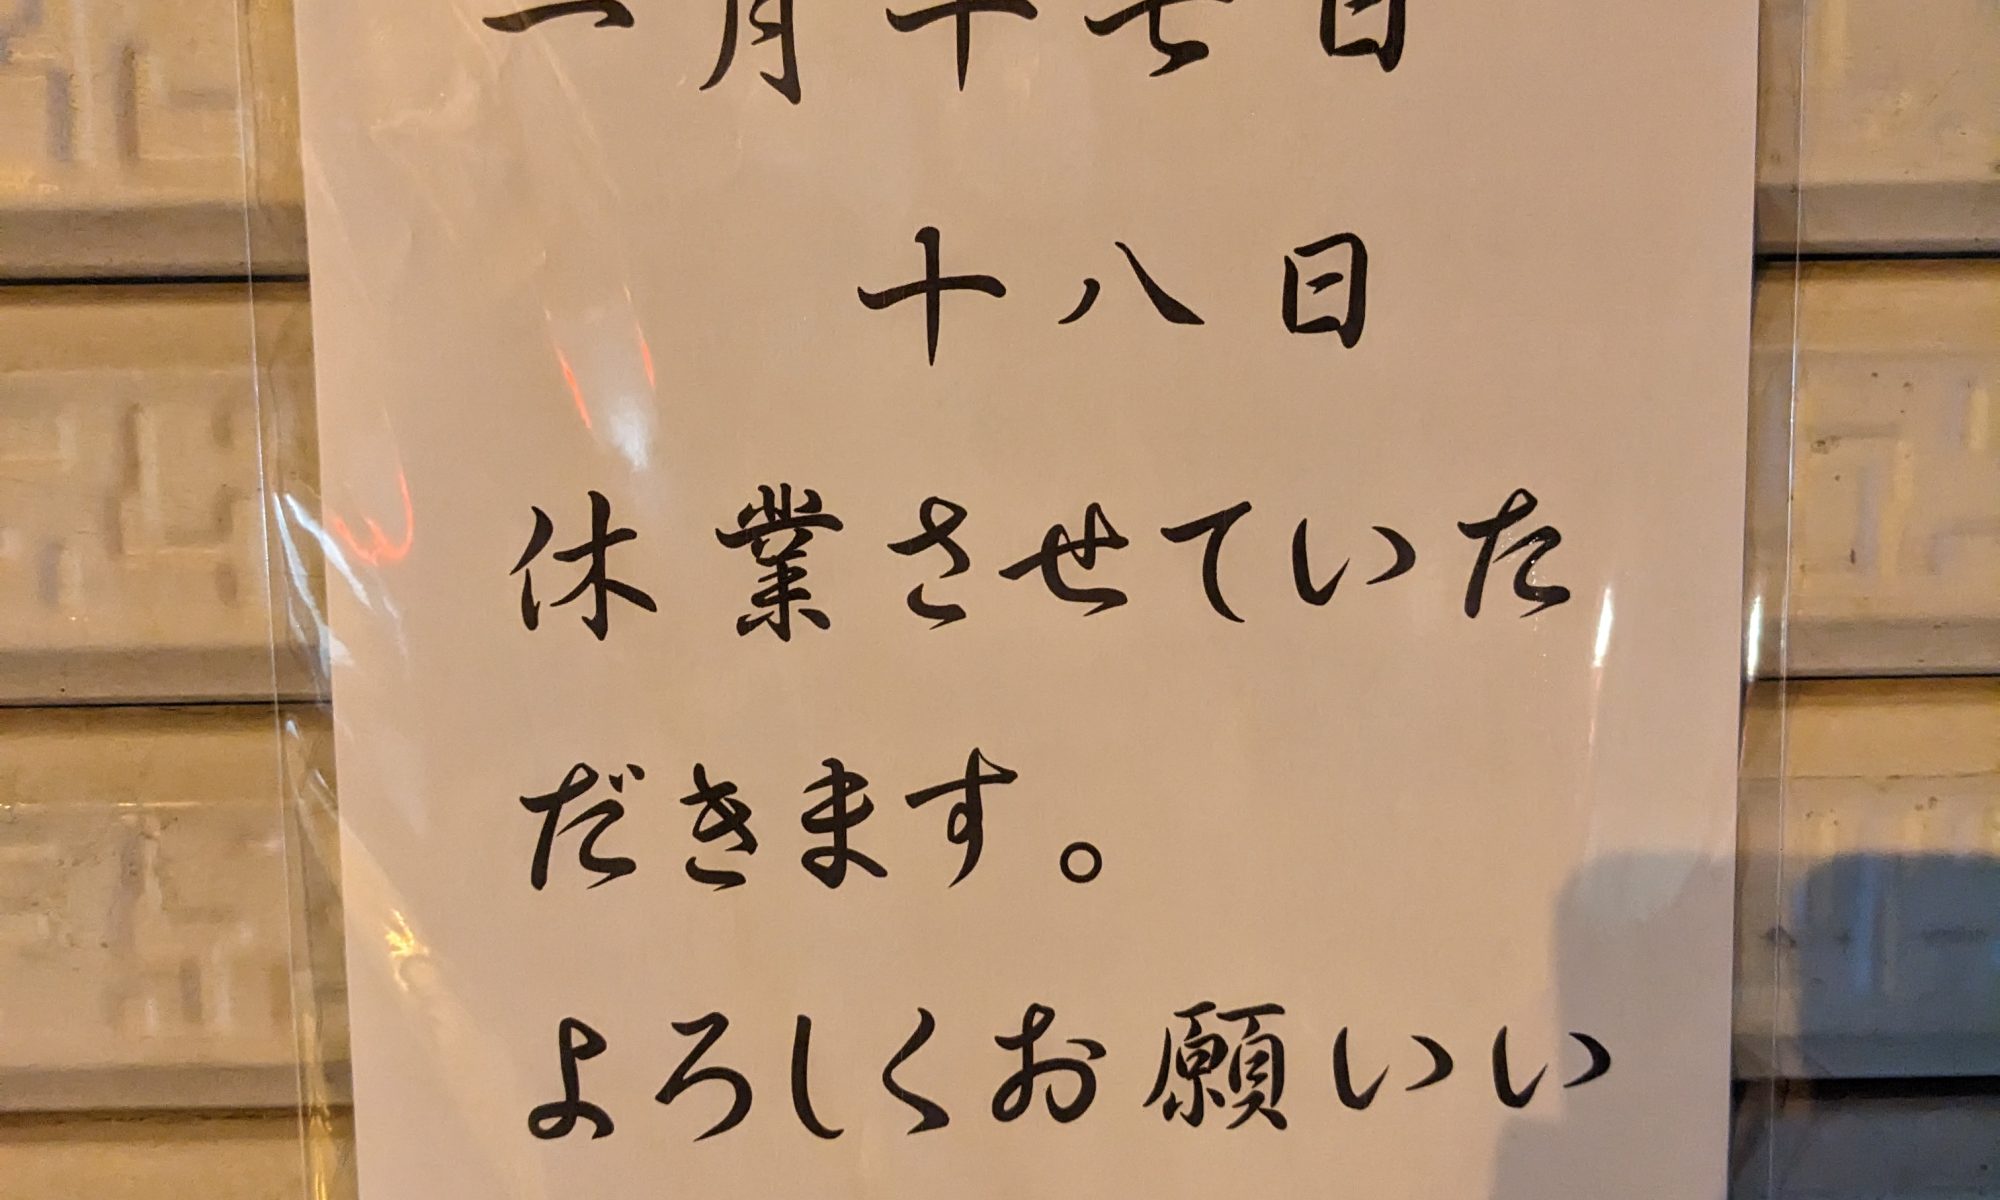 一月十七日
十八日
休業させていた
だきます。
よろしくお願いい